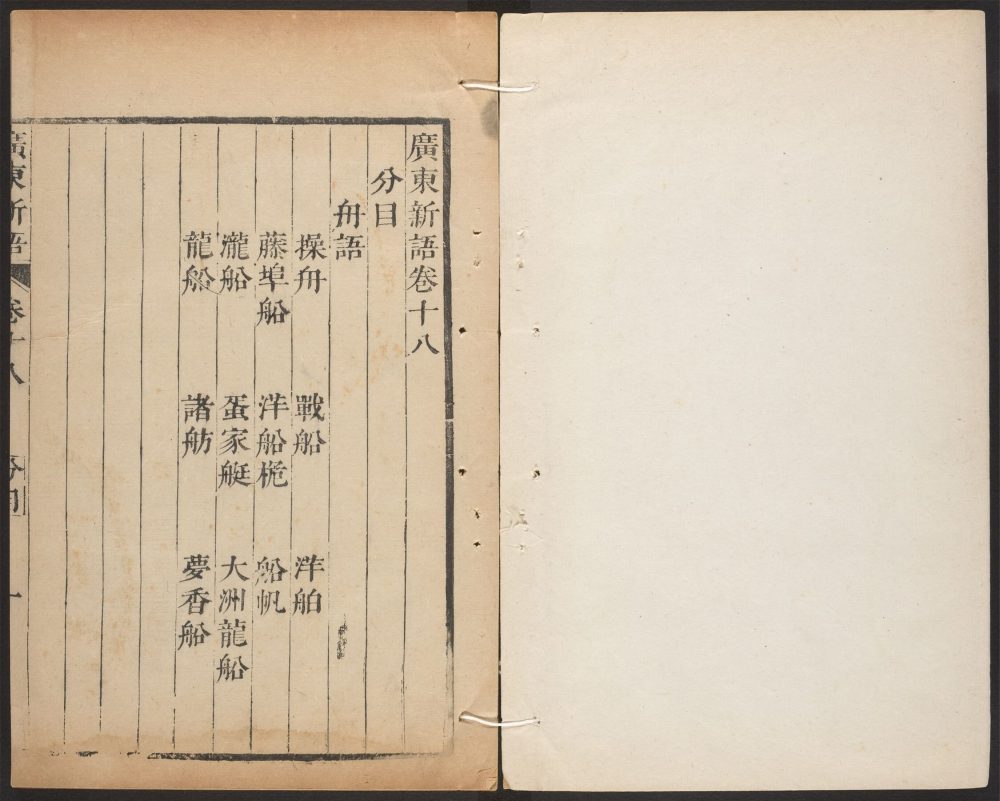 廣東新語卷十八
分目
舟語
操舟 戰船 洋舶
藤埠船 洋船桅 船帆
瀧船 蛋家艇 大洲龍船
龍船 諸舫 夢香船
廣東新語 卷十八 分目 一